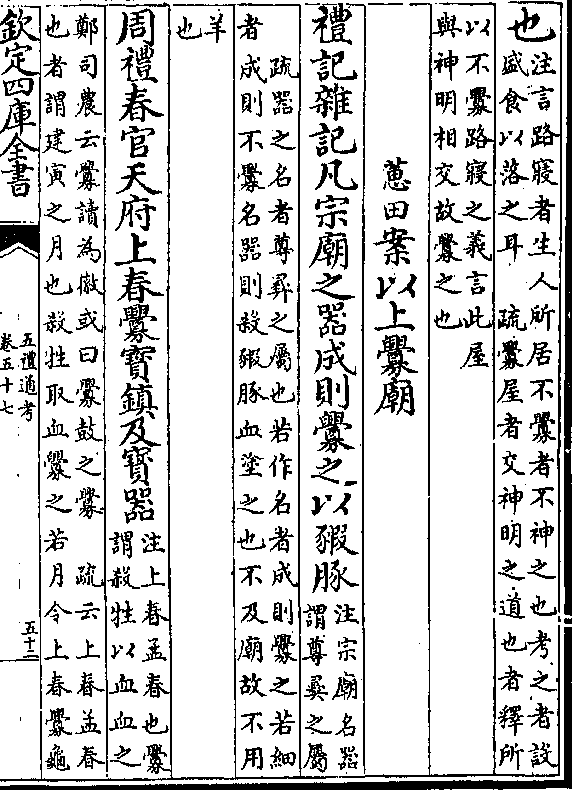 也
注言路寢者生人所居不釁者不神之也考之者設
盛食以落之耳　疏釁屋者交神明之道也者釋所
以不釁路寢之義言此屋
與神明相交故釁之也
蕙田案以上釁廟
禮記雜記凡宗廟之器成則釁之以豭豚
注宗廟名器
謂尊彝之屬
疏器之名者尊彝之屬也若作名者成則釁之若細
者成則不釁名器則殺豭豚血塗之也不及廟故不用
羊
也
周禮春官天府上春釁寶鎮及寶器
注上春孟春也釁
謂殺牲以血血之
鄭司農云釁讀為徽或曰釁鼓之釁　疏云上春孟春
也者謂建寅之月也殺牲取血釁之若月令上春釁龜
欽定四庫全書
五禮通考
卷五十七
五十二